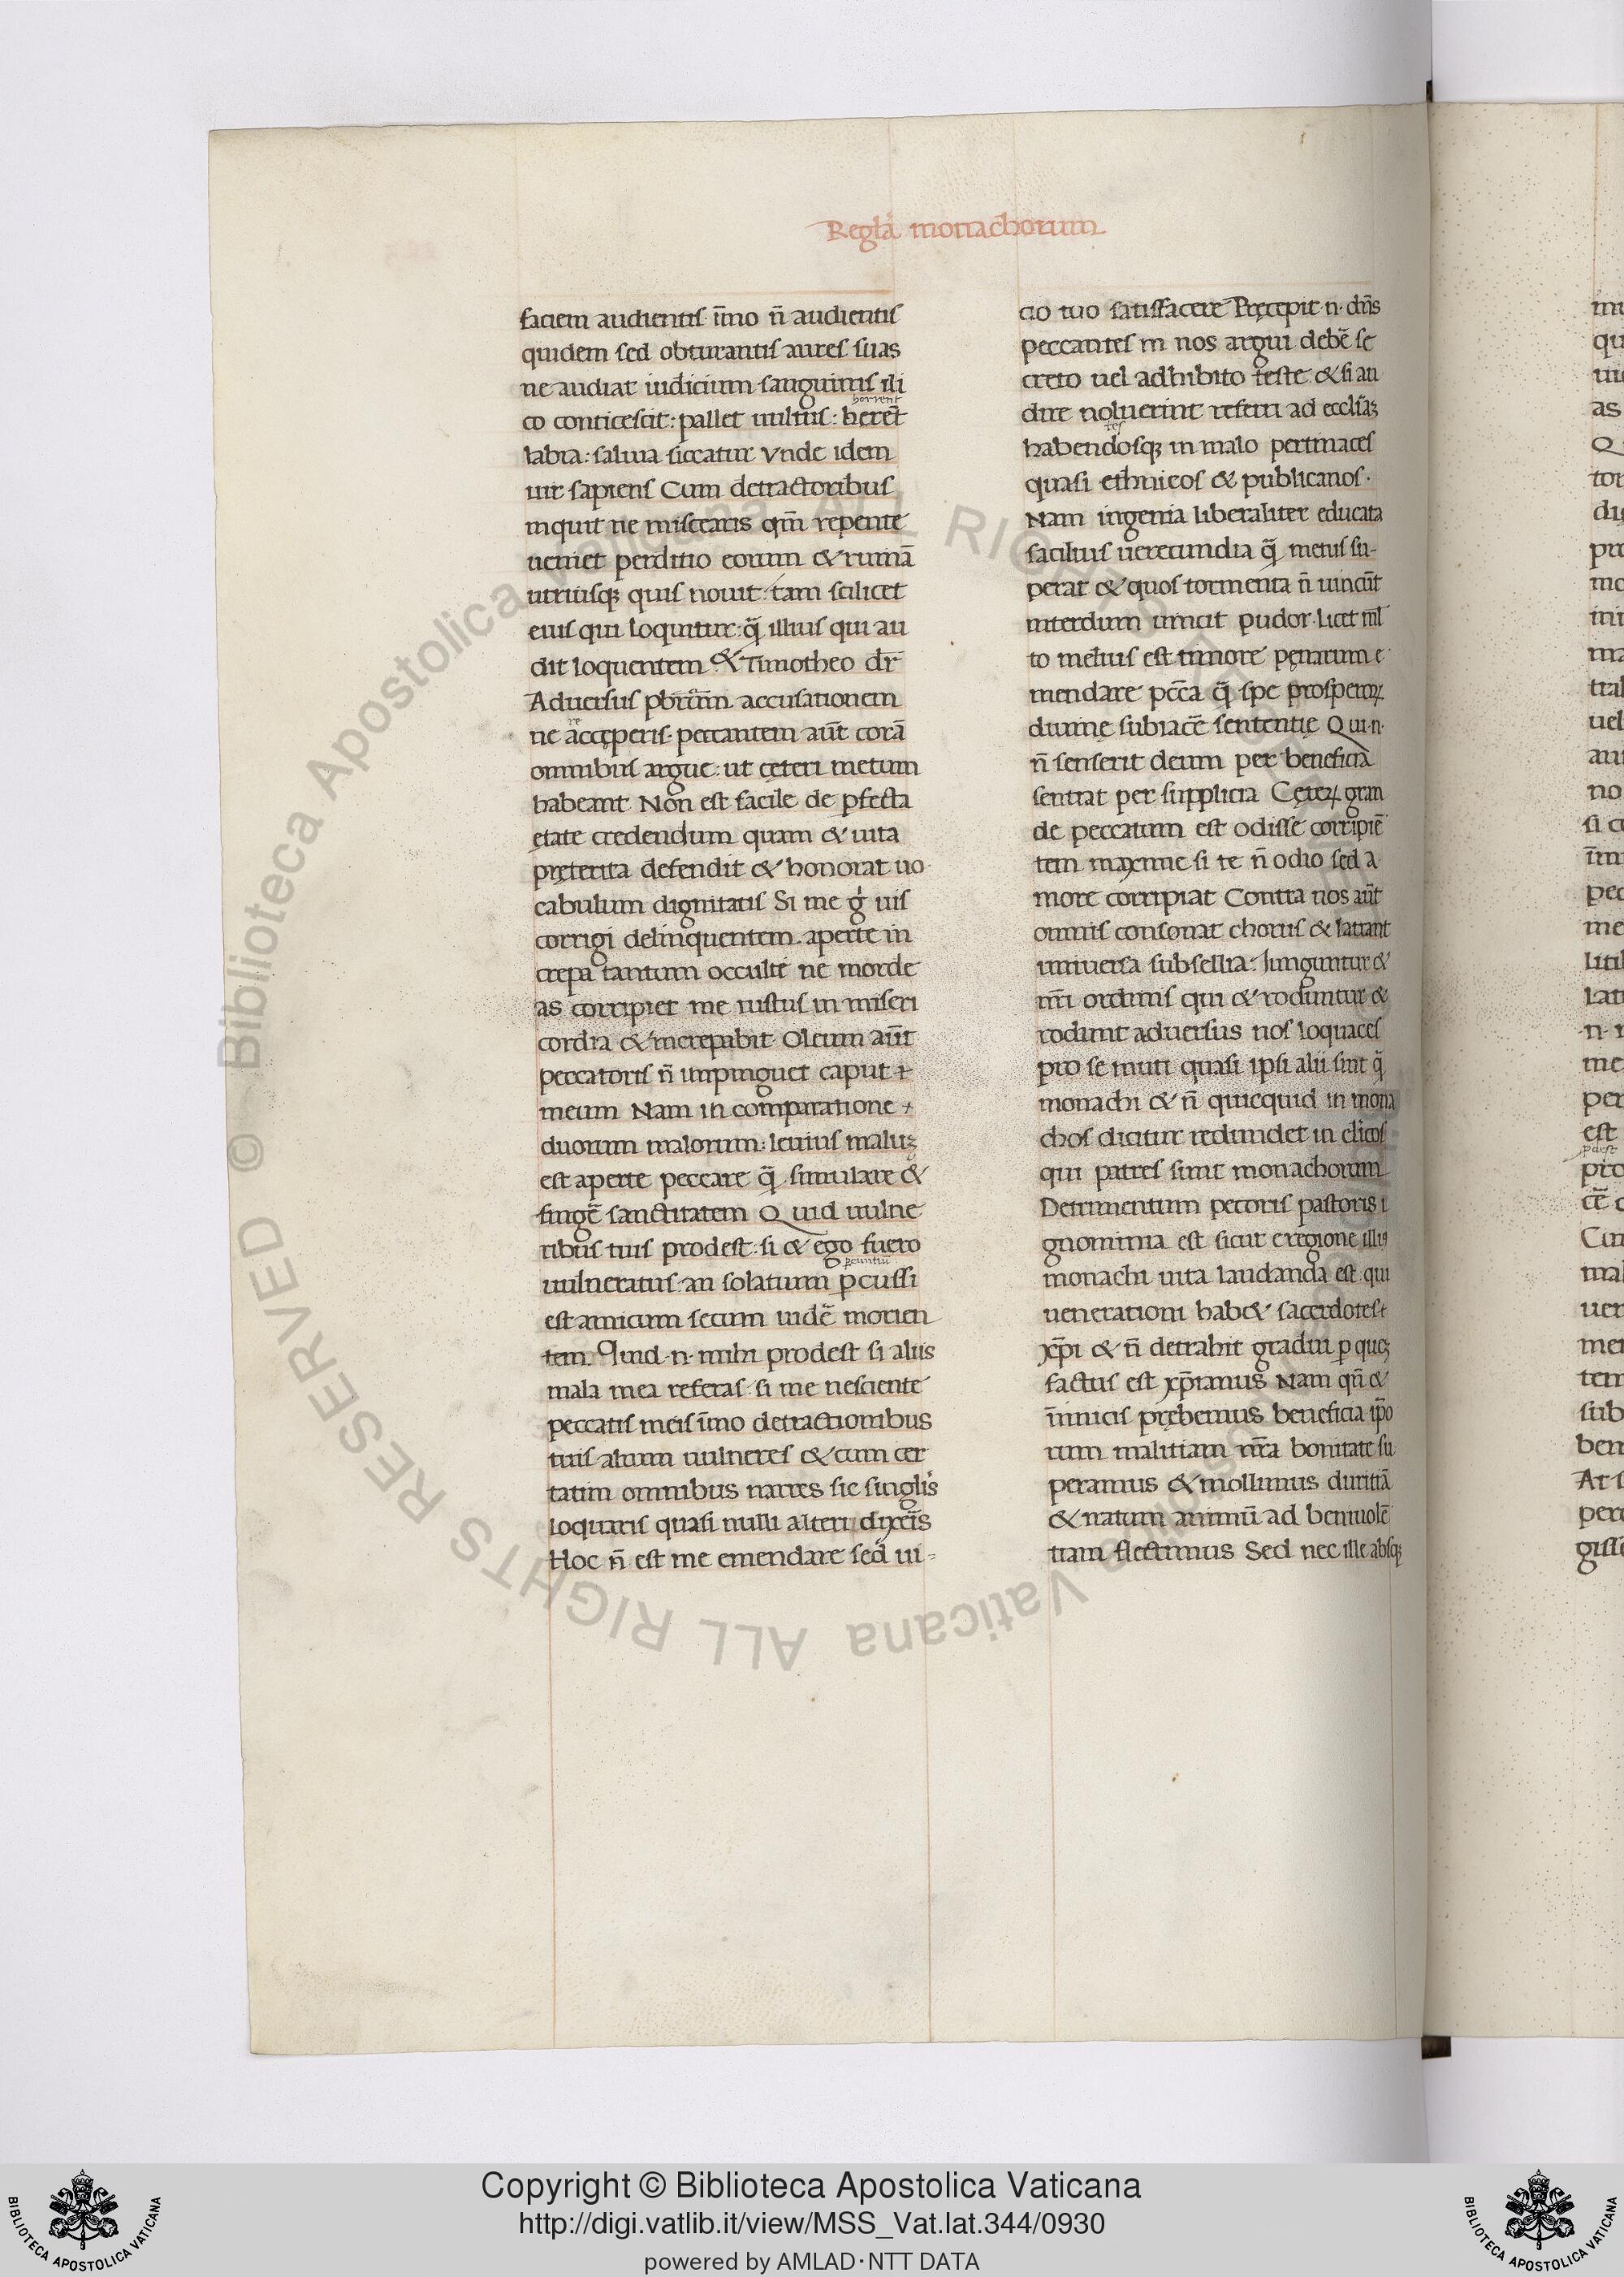 Regla monachorum
faciem audientis īmo n̄ audientis
quidem sed obturantis aures suas
ne audiat iudicium sanguinis ili
co conticescit: pallet uultus: herēt
horrent
labra: saliua siccatur Vnde idem
uir sapiens Cum detractoribus
inquit ne miscearis qm̄ repente
ueniet perditio eorum & ruinā
utriusqꝫ quis nouit: tam scilicet
eius qui loquitur: q̄ illius qui au
dit loquentem & Timotheo dr̄
Aduersus pbr̄um accusationem
ne accęperis peccantem aūt corā
re
omnibus argue: ut cęteri metum
habeant Non est facile de ꝑfecta
ętate credendum quam & uita
pręterita defendit & honorat uo
cabulum dignitatis Si me g̓ uis
corrigi delinquentem aperte in
crepa tantum occulte ne morde
as corripiet me iustus in miseri
cordia & increpabit Oleum aūt
peccatoris n̄ impinguet caput
meum Nam in comparatione
duorum malorum: leuius maluꝫ
est aperte peccare q̄ simulare &
fingē sanctitatem Quid uulne
ribus tuis prodest: si & ego fuero
uulneratus an solatium ꝑcussi
est amicum secum uidē morien
tem Quid n mihi prodest si aliis
mala mea referas si me nesciente
peccatis meis īmo detractionibus
tuis alium uulneres & cum cer
tatim omnibus narres sic singlis
loquaris quasi nulli alteri dixeīs
Hoc n̄ est me emendare sed ui-
cio tuo satisfacere Pręcepit n dn̄s
peccantes in nos argui debē se
creto uel adhibito teste & si au
dire noluerint referri ad ecclīaꝫ
habendosqꝫ in malo pertinaces
tes
quasi ethnicos & publicanos.
Nam ingenia liberaliter educata
facilius uerecundia q̄ metus su-
perat & quos tormenta n̄ uincūt
interdum uincit pudor. Licet ml
to melius est timore pęnarum e
mendare pccā q̄ spe prosperoꝝ
diuinę subiacē sententię Qui n
n̄ senserit deum per beneficia
sentiat per supplicia Cęteꝝ gran
de peccatum est odisse corripiē
tem maxime si te n̄ odio sed a
more corripiat Contra nos aūt
omnis consonat chorus & latrant
uniuersa subsellia: Iunguntur &
nr̄i ordinis qui & roduntur &
rodunt aduersus nos loquaces
pro se muti quasi ipsi alii sint q̄
monachi & n̄ quicquid in mona
chos dicitur redundet in clicos
qui patres sunt monachorum
Detrimentum pecoris pastoris i
gnominia est sicut e regione illiꝰ
monachi uita laudanda est qui
uenerationi hab& sacerdotes
xp̄i & n̄ detrahit gradui ꝑ queꝫ
factus est xp̄ianus Nam qn̄ &
inimicis pręhemus beneficia ip̄o
rum malitiam nr̄a bonitate su
peramus & mollimus duritiā
& natum animū ad beniuolē
tiam flectimus Sed nec ille absqꝫ
Copyright © Biblioteca Apostolica Vaticana
http://digi.vatlib.it/view/MSS_Vat.lat.344/0930
powered by AMLAD·NTT DATA